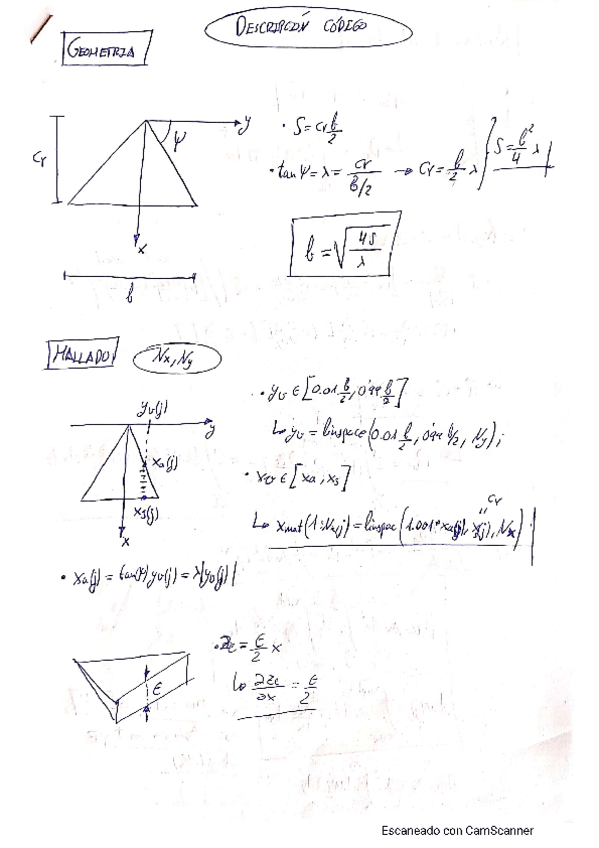 DESCRIPCIÓN CÓDIGO
GEOMETRIA
y
ψ
Cr
x
b
• S = Cr b/2
• tan ψ = λ = Cr/(b/2) → Cr = b/2 λ } S = b²/4 λ
b = √(4S/λ)
MALLADO Nx, Ny
yv(j)
y
xa(j)
xs(j)
x
• yv ∈ [0.01 b/2, 0'99 b/2]
↳ yv = linspace(0.01 b/2, 0'99 b/2, Ny);
• xv ∈ [xa, xs]
Cr
↳ xmat(1:Nx, j) = linspace(1.001*xa(j), xs(j), Nx)
• xa(j) = tan(ψ) yv(j) = λ|yv(j)|
ε
• zc = ε/2 x
↳ ∂zc/∂x = ε/2
Escaneado con CamScanner